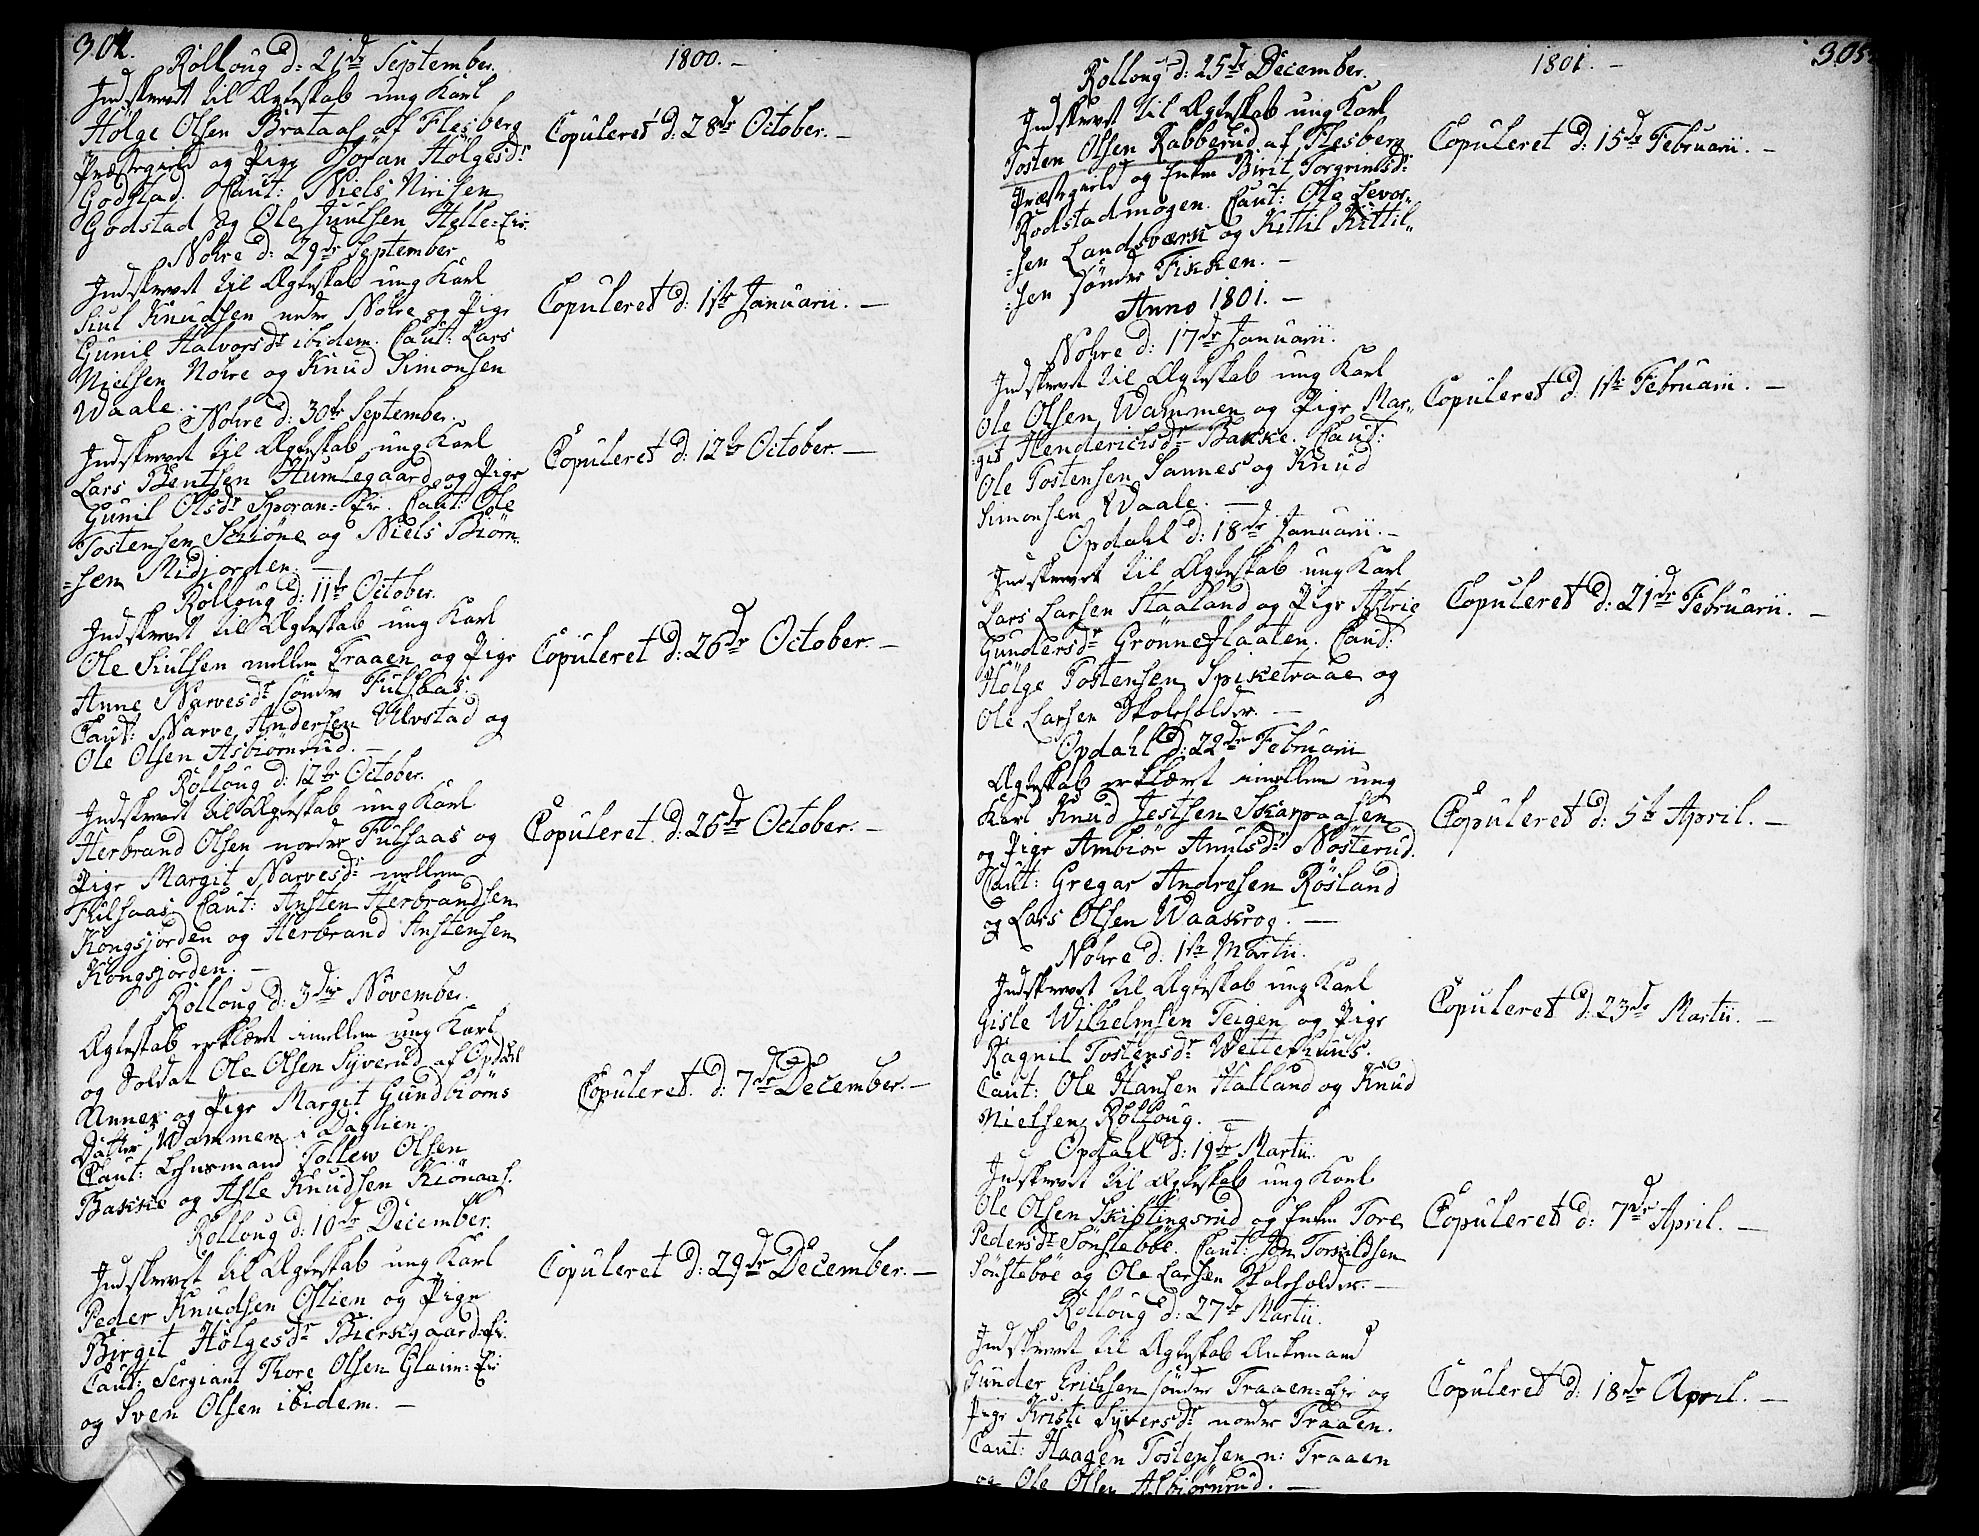 304.
1800. –
Rolloug d: 21de September.
Indskrevet til Ægteskab ung Karl
Hölge Olsen Brataas af Flesberg
Præstegield og Pige Jöran Hölgesdr
Godstad. Caut: Niels Nirisen
Godstad og Ole Juulsen Helle=Eie.
Copuleret d: 28de October. –
Nohre d: 29de September
Indskrevet til Ægteskab ung Karl
Kiul Knudsen nedre Nohre og Pige
Gunil Halvorsdr ibidem. Caut: Lars
Nielsen Nohre og Knud Simonsen
Waale.
Copuleret d: 1ste Januarii. –
Nohre d: 30te September.
Indskrevet til Ægteskab ung Karl
Lars Bentsen Humlegaard og Pige
Gunil Olsdr Sporan=Eie. Caut: Ole
Tostensen Schiöne og Niels Biörn-
-sen Midjorden. –
Copuleret d: 12te October. –
Rolloug d: 11te October.
Indskrevet til Ægteskab ung Karl
Ole Kiulsen mellem Traaen og Pige
Anne Narvesdr söndre Fulsaas.
Caut: Narve Andersen Ulvstad og
Ole Olsen Asbiörnrud. –
Copuleret d: 26de October. –
Rolloug d: 12te October.
Indskrevet til Ægteskab ung Karl
Herbrand Olsen nordre Fulsaas og
Pige Margit Narvesdr mellem
Fulsaas. Caut: Ansten Herbrandsen
Kongsjorden og Herbrand Anstensen
Kongsjorden. –
Copuleret d: 26de October. –
Rolloug d: 3die November.
Ægteskab erklæret imellem ung Karl
og Soldat Ole Olsen Syverud af Opdahl
Annex og Pige Margit Gundbiörns
Datter Wammen i Daglien.
Caut: Lehnsmand Tollew Olsen
Bakke og Asle Knudsen Kiönaas.
Copuleret d: 7de December. –
Rolloug d: 10de December.
Indskrevet til Ægteskab ung Karl
Peder Knudsen Oslien og Pige
Birgit Hölgesdr Bierkgaard=Ei.
Caut: Sergiant Thore Olsen Glaim=Eie
og Sven Olsen ibidem. –
Copuleret d: 29de December. –
305.
1801. –
Rolloug d: 25de December.
Indskrevet til Ægteskab ung Karl
Tosten Olsen Rabberud af Flesberg
Præstegield og Enken Birit Torgrimsdr
Rodstadmogen. Caut: Ole Sevor-
-sen Landsværk og Kittil Kittil-
-sen söndre Fikken. –
Copuleret d: 15de Februarii. –
Anno 1801. –
Nohre d: 17de Januarii.
Indskrevet til Ægteskab ung Karl
Ole Olsen Wammen og Pige Mar-
-git Henderichsdr Bakke. Caut:
Ole Tostensen Sannes og Knud
Simonsen Waale. –
Copuleret d: 1ste Februarii. –
Opdahl d: 18de Januarii. –
Indskrevet til Ægteskab ung Karl
Lars Larsen Staaland og Pige Astrie
Gundersdr Grönneflaaten. Caut:
Hölge Tostensen Spiketraae og
Ole Larsen Skoleholder. –
Copuleret d: 21de Februarii. –
Opdahl d: 22de Februarii
Ægteskab erklæret imellem ung
Karl Knud Jestsen Skarpaasen
og Pige Ambiör Anulsdr Nösterud.
Caut: Gregar Andresen Rösland
og Lars Olsen Waakrog. –
Copuleret d: 5te April. –
Nohre d: 1ste Martii.
Indskrevet til Ægteskab ung Karl
Gisle Wilhelmsen Teigen og Pige
Ragnil Tostensdr Wetterhuus.
Caut: Ole Hansen Halland og Knud
Nielsen Rolloug. –
Copuleret d: 23de Martii. –
Opdahl d: 19de Martii.
Indskrevet til Ægteskab ung Karl
Ole Olsen Skiblingsrud og Enken Tore
Pedersdr Sönsteböe. Caut: Jon Torvildsen
Sönsteböe og Ole Larsen Skoleholder. –
Copuleret d: 7de April. –
Rolloug d: 27de Martii.
Indskrevet til Ægteskab Ænkemand
Gunder Erichsen söndre Traaen=Eie og
Pige Kristi Syversdr nordre Traaen.
Caut: Haagen Tostensen n: Traaen
og Ole Olsen Asbiörnrud. –
Copuleret d: 18de April. –